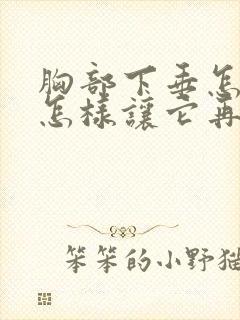 胸部下垂怎
怎样讓它再
笨笨的小野猫